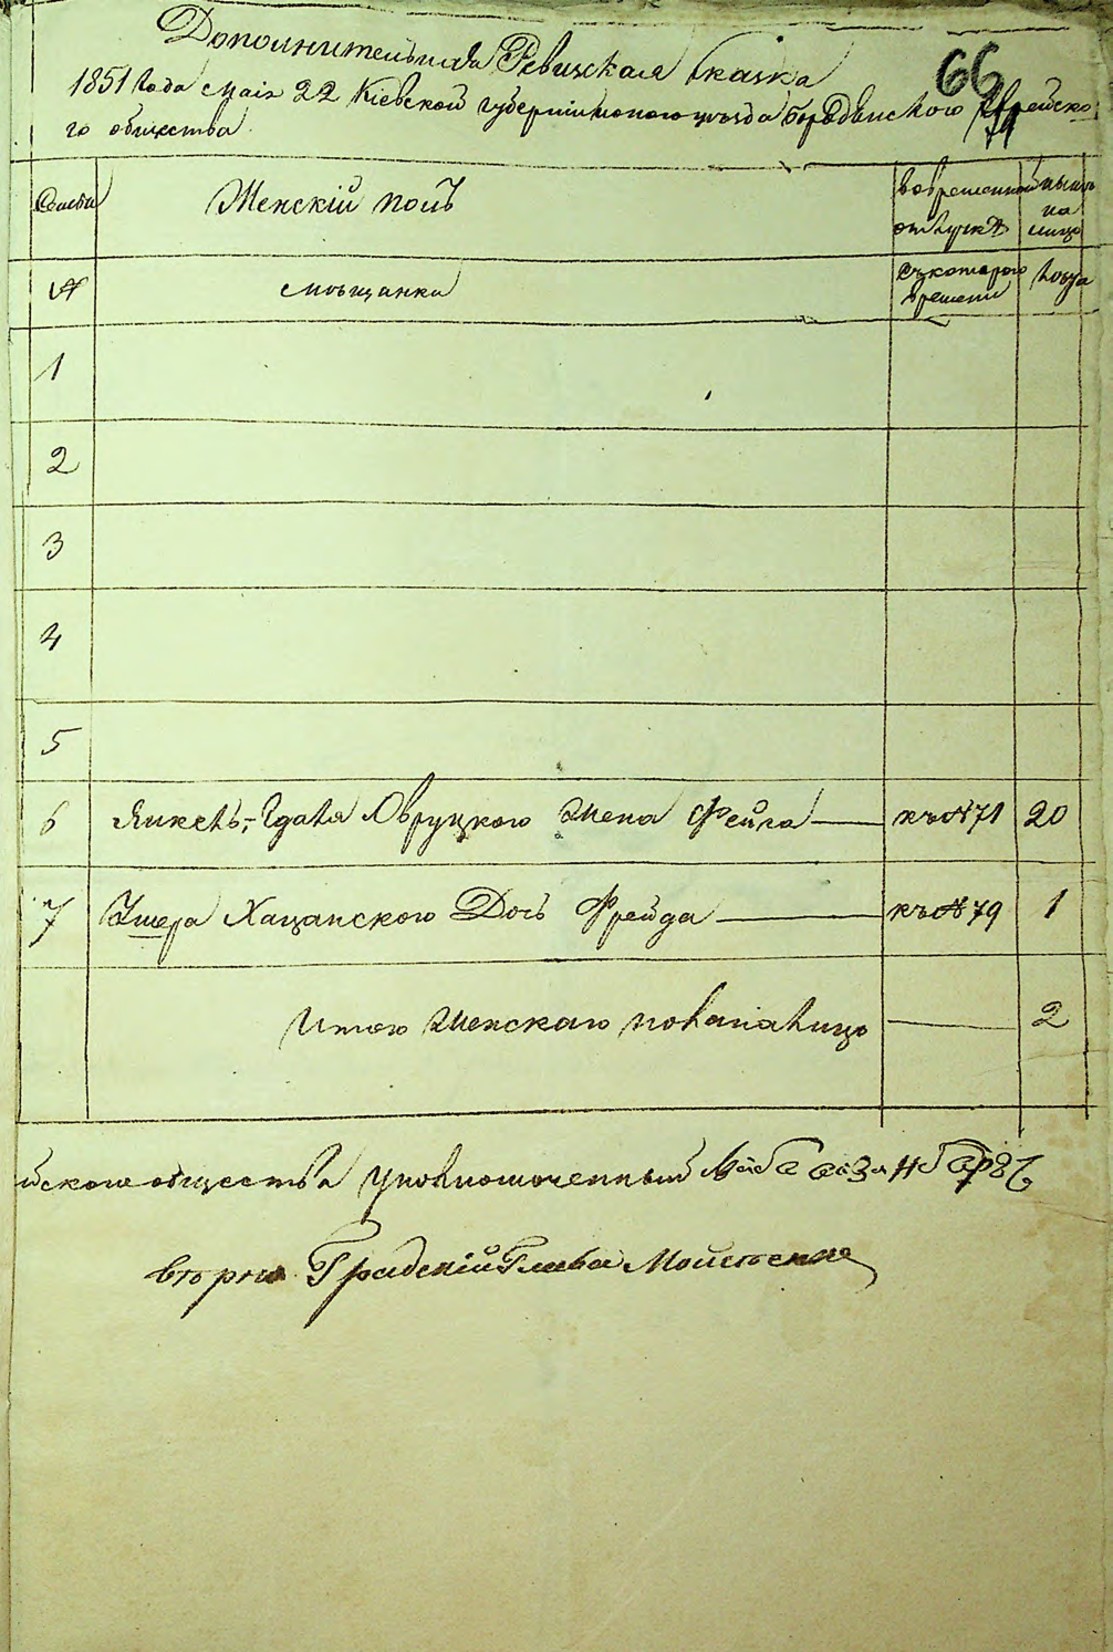 Дополнительная Ревизская Сказка
66
1851 года маія 22 Кіевской губерніи уѣзда Еврейско
го общества
Семьи Женскій полъ во временной отлучкѣ нынѣ на лицо
№ мѣщанки съ котораго времени лѣта
1
2
3
4
5
6 Янкель-Гдаля Овруцкого Жена Фейга къ № 71 20
7 Ушера Хацанского Дочь Фрейда къ № 79 1
Итого женскаго пола на лицо 2
йского общества уполномоченный
вѣрно Градскій Глава Мойсѣенко